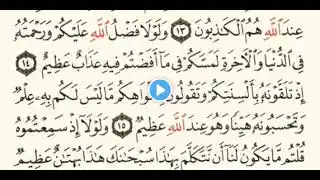 عِندَ ٱللَّهِ هُمُ ٱلْكَٰذِبُونَ ١٣ وَلَوْلَا فَضْلُ ٱللَّهِ عَلَيْكُمْ وَرَحْمَتُهُۥ
فِى ٱلدُّنْيَا وَٱلْأَخِرَةِ لَمَسَّكُمْ فِى مَآ أَفَضْتُمْ فِيهِ عَذَابٌ عَظِيمٌ ١٤
إِذْ تَلَقَّوْنَهُۥ بِأَلْسِنَتِكُمْ وَتَقُولُونَ بِأَفْوَاهِكُم مَّا لَيْسَ لَكُم بِهِۦ عِلْمٌ
وَتَحْسَبُونَهُۥ هَيِّنًا وَهُوَ عِندَ ٱللَّهِ عَظِيمٌ ١٥ وَلَوْلَآ إِذْ سَمِعْتُمُوهُ
قُلْتُم مَّا يَكُونُ لَنَآ أَن نَّتَكَلَّمَ بِهَٰذَا سُبْحَٰنَكَ هَٰذَا بُهْتَٰنٌ عَظِيمٌ